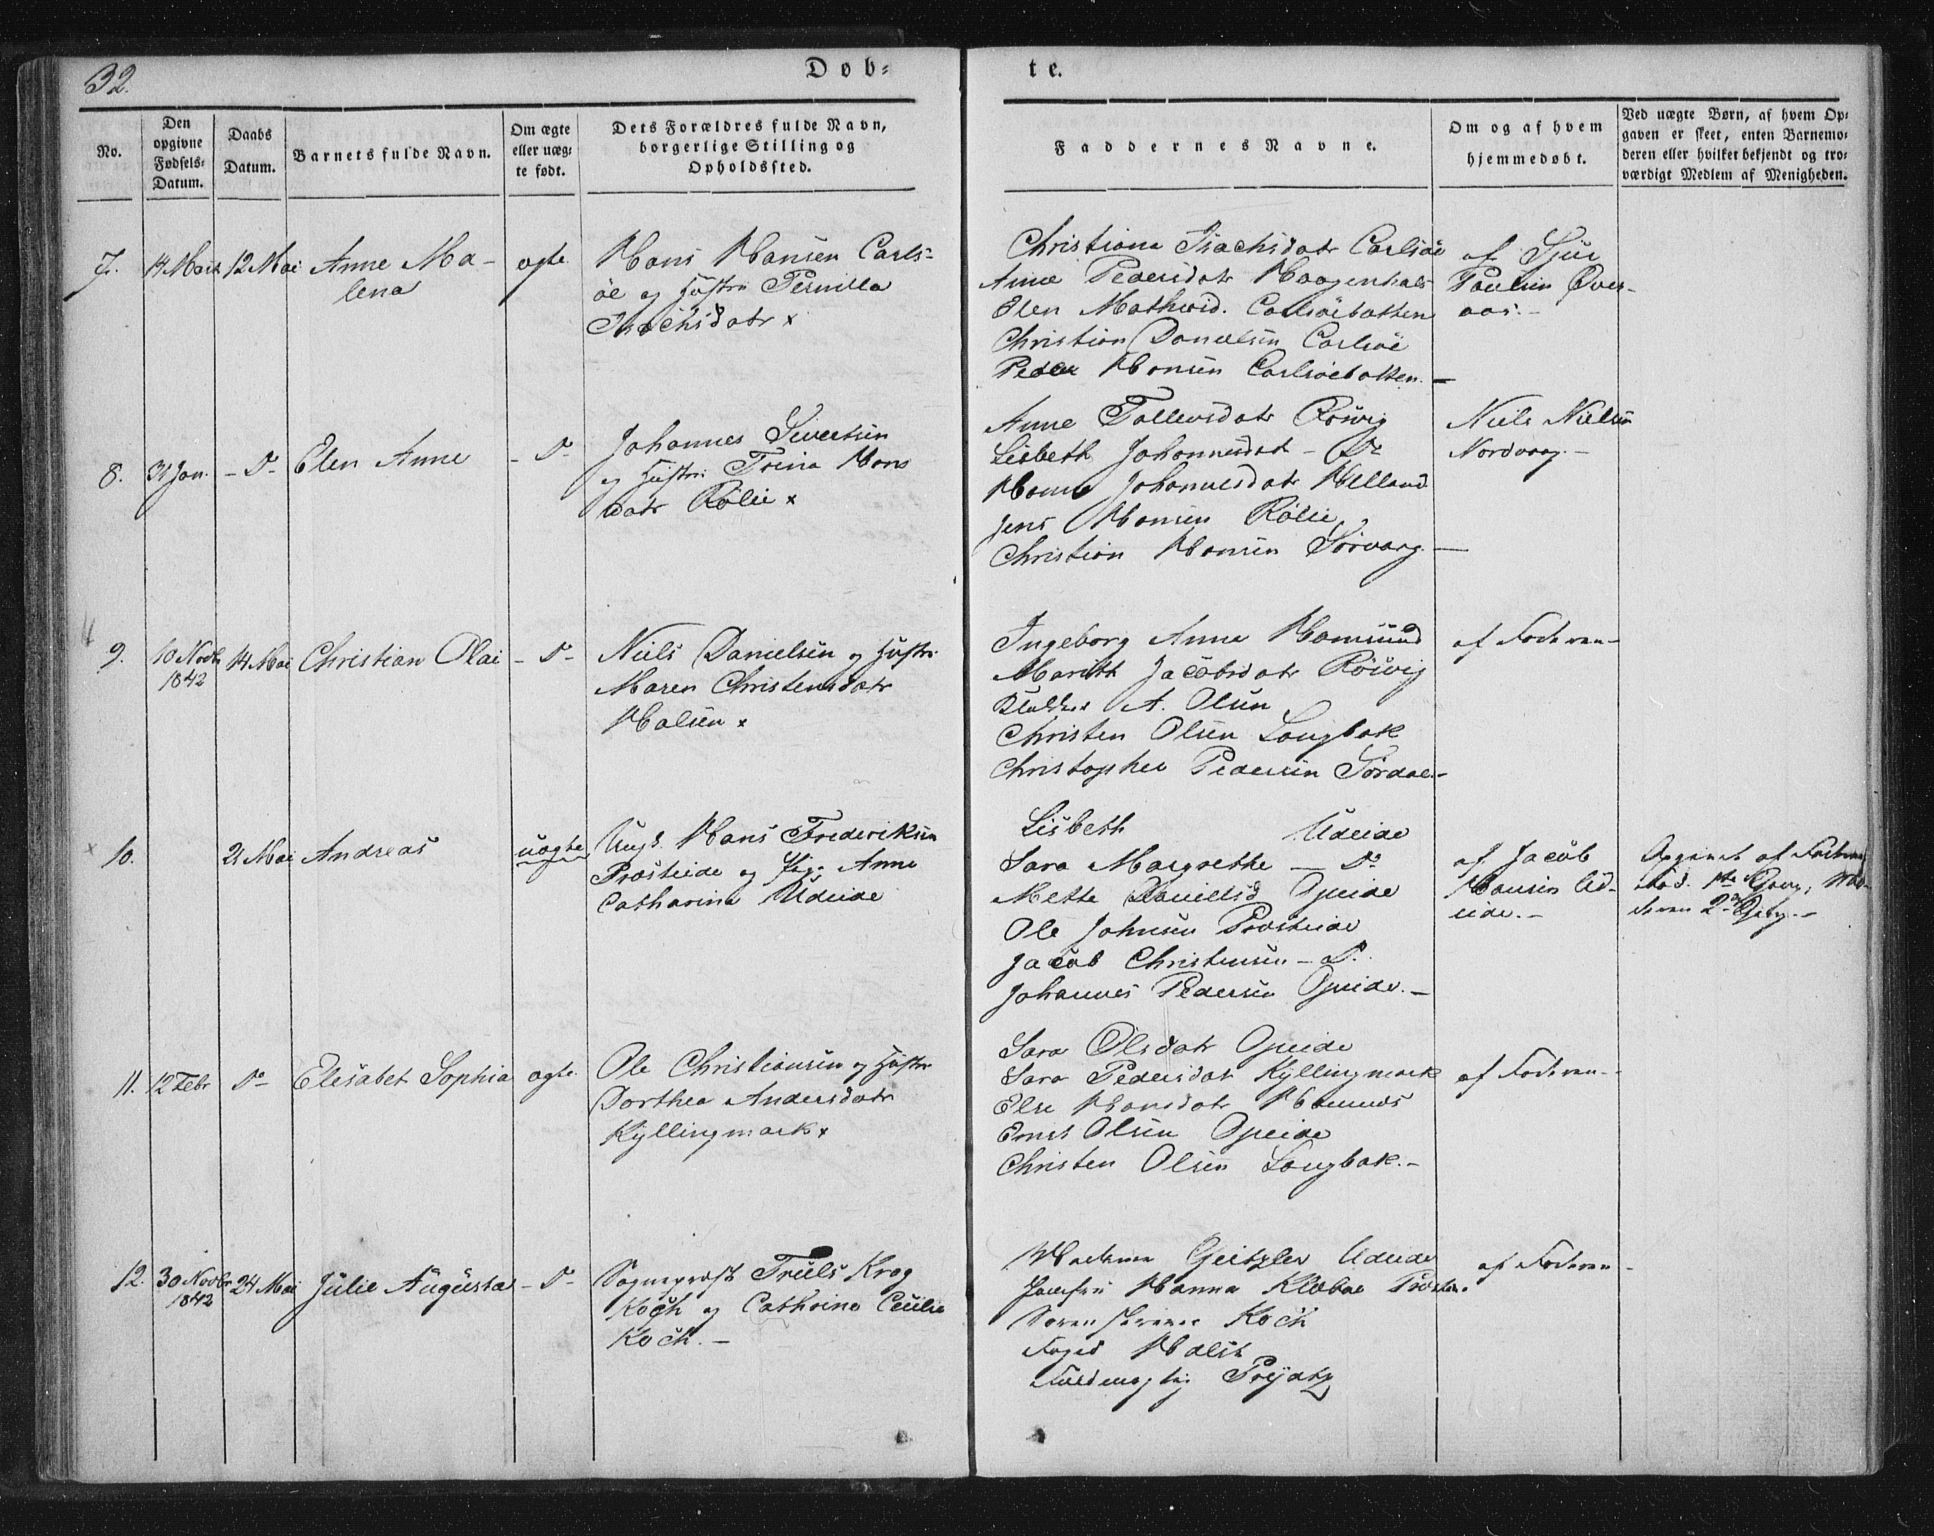 32.
Døb=
te.
No.
Den opgivne Fødsels-Datum.
Daabs Datum.
Barnets fulde Navn.
Om ægte eller uæg-te født.
Dets Forældres fulde Navn, borgerlige Stilling og Opholdssted.
Faddernes Navne.
Om og af hvem hjemmedøbt.
Ved uægte Børn, af hvem Op-
gaven er skeet, enten Barnemo-
deren eller hvilket bekjendt og tro-
værdigt Medlem af Menigheden.
7. 14 Marts 12 Mai Anne Ma-
lena
ægte
Hans Hansen Carls-
øe og Hustru Pernilla
Isachsdatr x
Christiana Isachsdatr Carlsøe
Anne Pedersdatr Haagenhals
Elen Carlsøebotten
Christian Danielsen Carlsøe
Peder Hansen Carlsøebotten.
af Sjur
Paulsen Over-
aas.-
8. 31 Jan. - Do - Elen Anne - Do -
Johannes Sivertsen
og Hustru Trina Hans
datr Rølie x
Anne Tollevsdatr Røsvig
Lisbeth Johannesdat - Do
Hanna Johannesdatr Helland
Jens Hansen Rølie
Christian Hansen Sørvaag.
Niels Nielsen
Nordvaag.-
9. 10 Novbr 1842 14 Mai Christian Olai - Do -
Niels Danielsen og Hustru
Maren Christensdatr
Halsen x
Ingeborg Anna Hamsund
Marith Jacobsdatr Røsvig
Klokker A. Olsen
Christen Olsen Langbak
Christopher Pedersen Sørdal.-
af Faderen -
10. 21 Mai Andreas uægte
Ungk. Hans Frederiksen
Præsteide og Pig. Anne
Catharina Udeide
Lisbeth Udeide
Sara Margrethe - Do
Mette Danielsd Opeide
Ole Johnsen Præsteide
Jacob Christensen - Do.
Johannes Pedersen Opeide.-
af Jacob
Hansen Ud-
eide.-
Opgivet af Faderen
1ste Gang, Mo-
deren 2den Gang.-
11. 12 Febr Do - Elisabet Sophia ægte.
Ole Christiansen og Hustru
Dorthea Andersdatr
Kyllingmark x
Sara Olsdatr Opeide
Sara Pedersdat Kyllingmark
Else Hansdatr Hamnes
Ernst Olsen Opeide
Christen Olsen Langbak.-
af Faderen -
12. 30 Novbr 1842 24 Mai Julie Augusta - Do -
Sogneprest Truls Krog
Koch og Cathrine Cecilie
Koch.-
Geitzler Udeide
Jomfru Hanna Klæboe
Koch
Foged Holst
Fuldmægtig Prydtz
af Faderen -